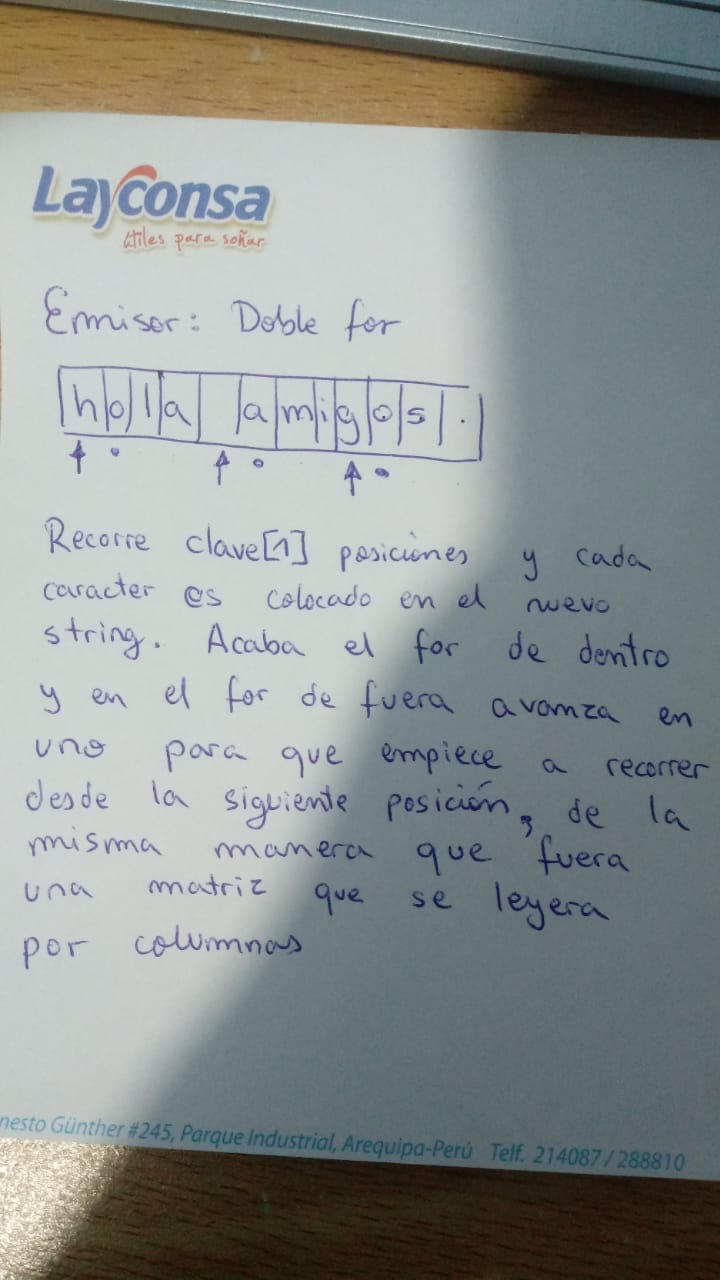 Layconsa
útiles para soñar
Emisor: Doble for
hola amigos.
Recorre clave[1] posiciones y cada
caracter es colocado en el nuevo
string. Acaba el for de dentro
y en el for de fuera avanza en
uno para que empiece a recorrer
desde la siguiente posición, de la
misma manera que fuera
una matriz que se leyera
por columnas
nesto Günther #245, Parque Industrial, Arequipa-Perú Telf. 214087 / 288810